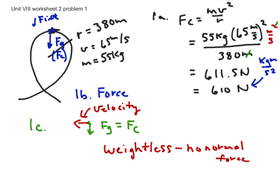 Unit VIII worksheet 2 problem 1
√ First
Fg
(Fc)
r = 380m
v = 65m/s
m = 55kg
1a. Fc = mv²/r
= 55kg (65 m/s)²
380m
= 611.5N
= 610N
kg m/s²
1b. Force
Velocity
1c.
Fg = Fc
weightless - no normal
force